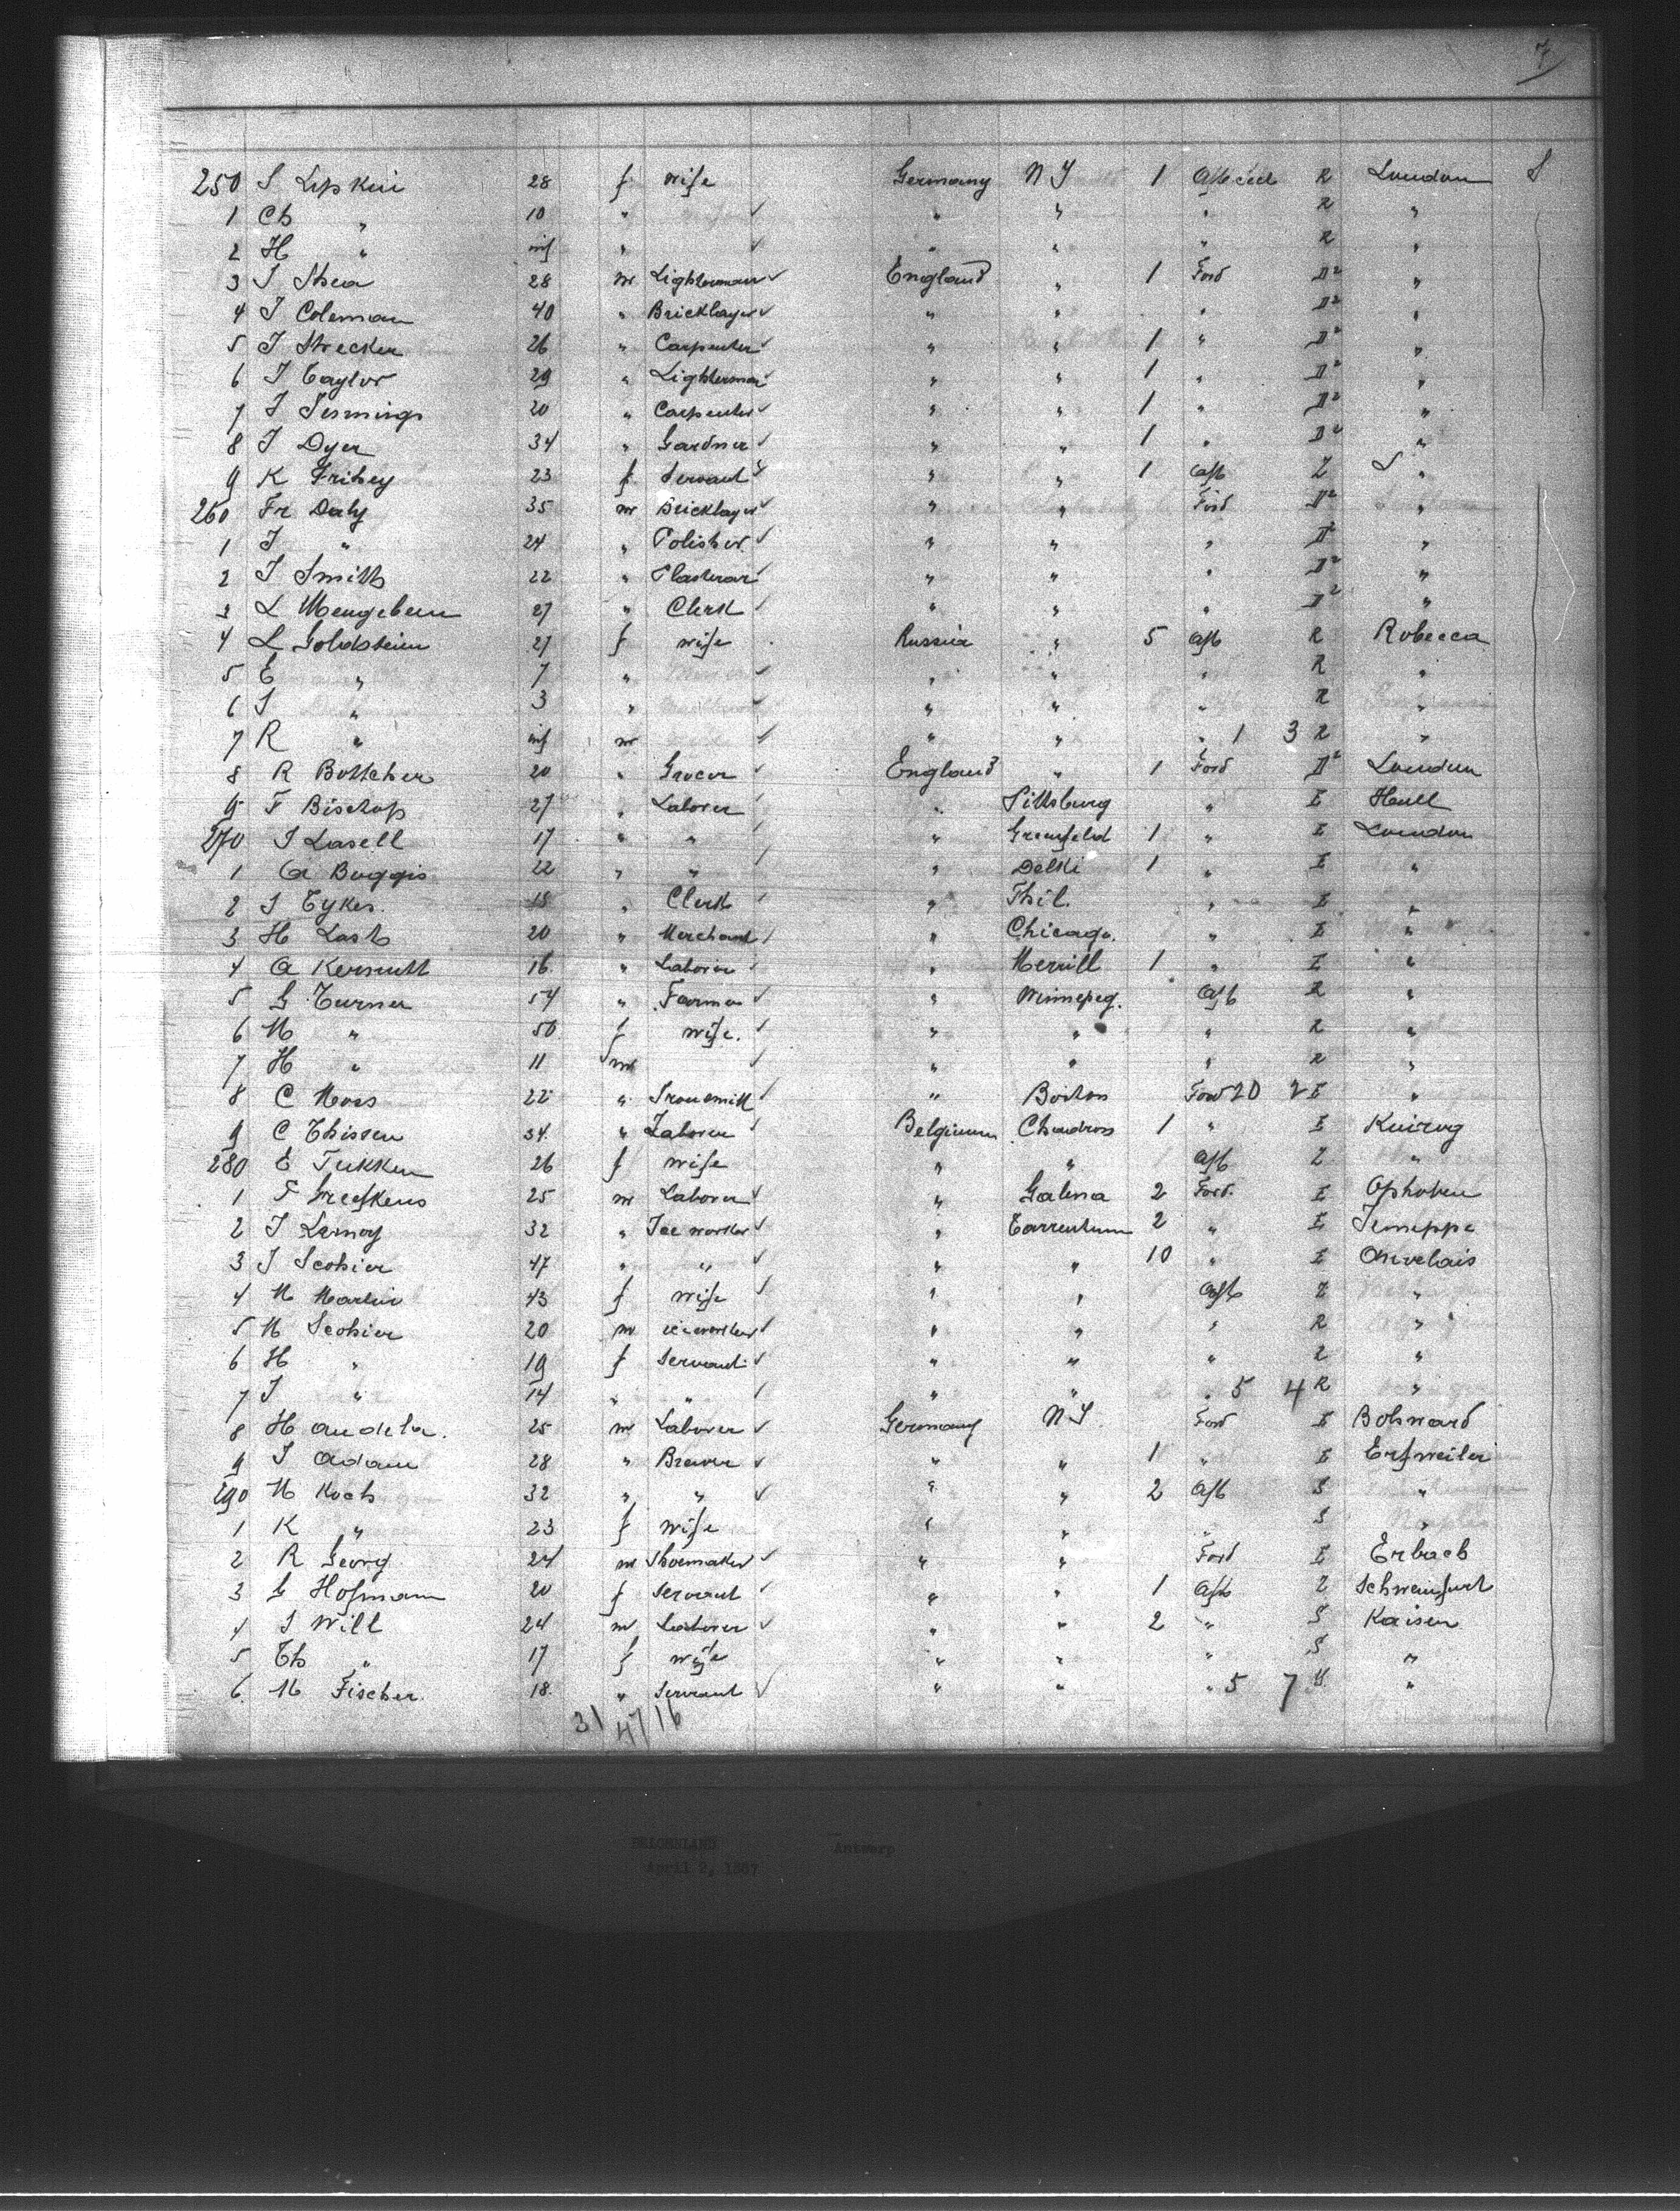 7
250 S Lipkin 28 f wife Germany N Y 1 Aft R London S
1 Ch " 10 " " " " R "
2 H " inf " " " " R "
3 J Shea 28 m Lighterman England " 1 Ford D2 "
4 J Coleman 40 " Bricklayer " " " D2 "
5 J Strecker 26 " Carpenter " " 1 " D2 "
6 J Taylor 29 " Lighterman " " 1 " D2 "
7 J Jennings 20 " Carpenter " " 1 " D2 "
8 J Dyer 34 " Gardner " " 1 " D2 "
9 K Frihey 23 f Servant " " 1 Aft Z S "
260 Fr Daly 35 m Bricklayer " " Ford D2 "
1 J " 24 " Polisher " " " D2 "
2 J Smith 22 " Plasterar " " " D2 "
3 L Mengebeun 27 " Clerk " " " D2 "
4 L Goldstein 27 f wife Russia " 5 Aft R Robecca
5 E " 7 " " " " R "
6 J " 3 " " " " R "
7 R " inf m " " " 1 3 R "
8 R Bottcher 20 " Grocer England " 1 Ford D2 London
9 F Bischop 27 " Laborer " Pittsburg " E Hull
270 J Lasell 17 " " " Greenfeld 1 " E London
1 A Boggis 22 " " " Delhi 1 " E "
2 J Tykes. 18 " Clerk " Phil. " E "
3 H Lash 20 " Merchant " Chicago. " E "
4 A Kersutt 16 " Laborer " Merrill 1 " E "
5 G Turner 54 " Farmer " Winnepeg. Aft R "
6 M " 50 f wife. " " " R "
7 H " 11 m " " " R "
8 C Moss 22 " Ironsmith " Boston Ford 20 2 E "
9 C Thissen 34. " Laborer Belgium Chadron 1 " E
280 E Tukken 26 f wife " " Aft Z "
1 25 m Laborer " Galena 2 Ford. E Ophoven
2 J Lernoy 32 " Ice worker " Tarrentum 2 " E Jemeppe
3 J Scohier 47 " " " " 10 " E
4 M Martin 43 f wife " " Aft Z "
5 M Scohier 20 m " " " R "
6 H " 19 f Servant " " " Z "
7 J " 14 " " " " " 5 4 R "
8 H 25 m Laborer Germany N Y. Ford E
9 J Adam 28 " Brewer " " 1 " E Erfweiler
290 M Koch 32 " " " " 2 Aft S "
1 K " 23 f wife " " " S "
2 R Georg 24 m Shoemaker " " Ford E Erbach
3 G Hofmann 20 f Servant " " 1 Aft Z Schweinfurt
4 J Will 24 m Laborer " " 2 " S Kaisen
5 Th " 17 f wife " " " S "
6. M Fischer. 18. " Servant " " " 5 7 "
31 47/16
BELGENLAND Antwerp
April 2, 1887